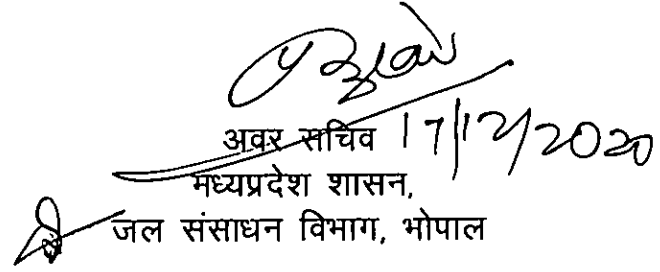 अवर सचिव 17/12/2020
मध्यप्रदेश शासन,
जल संसाधन विभाग, भोपाल